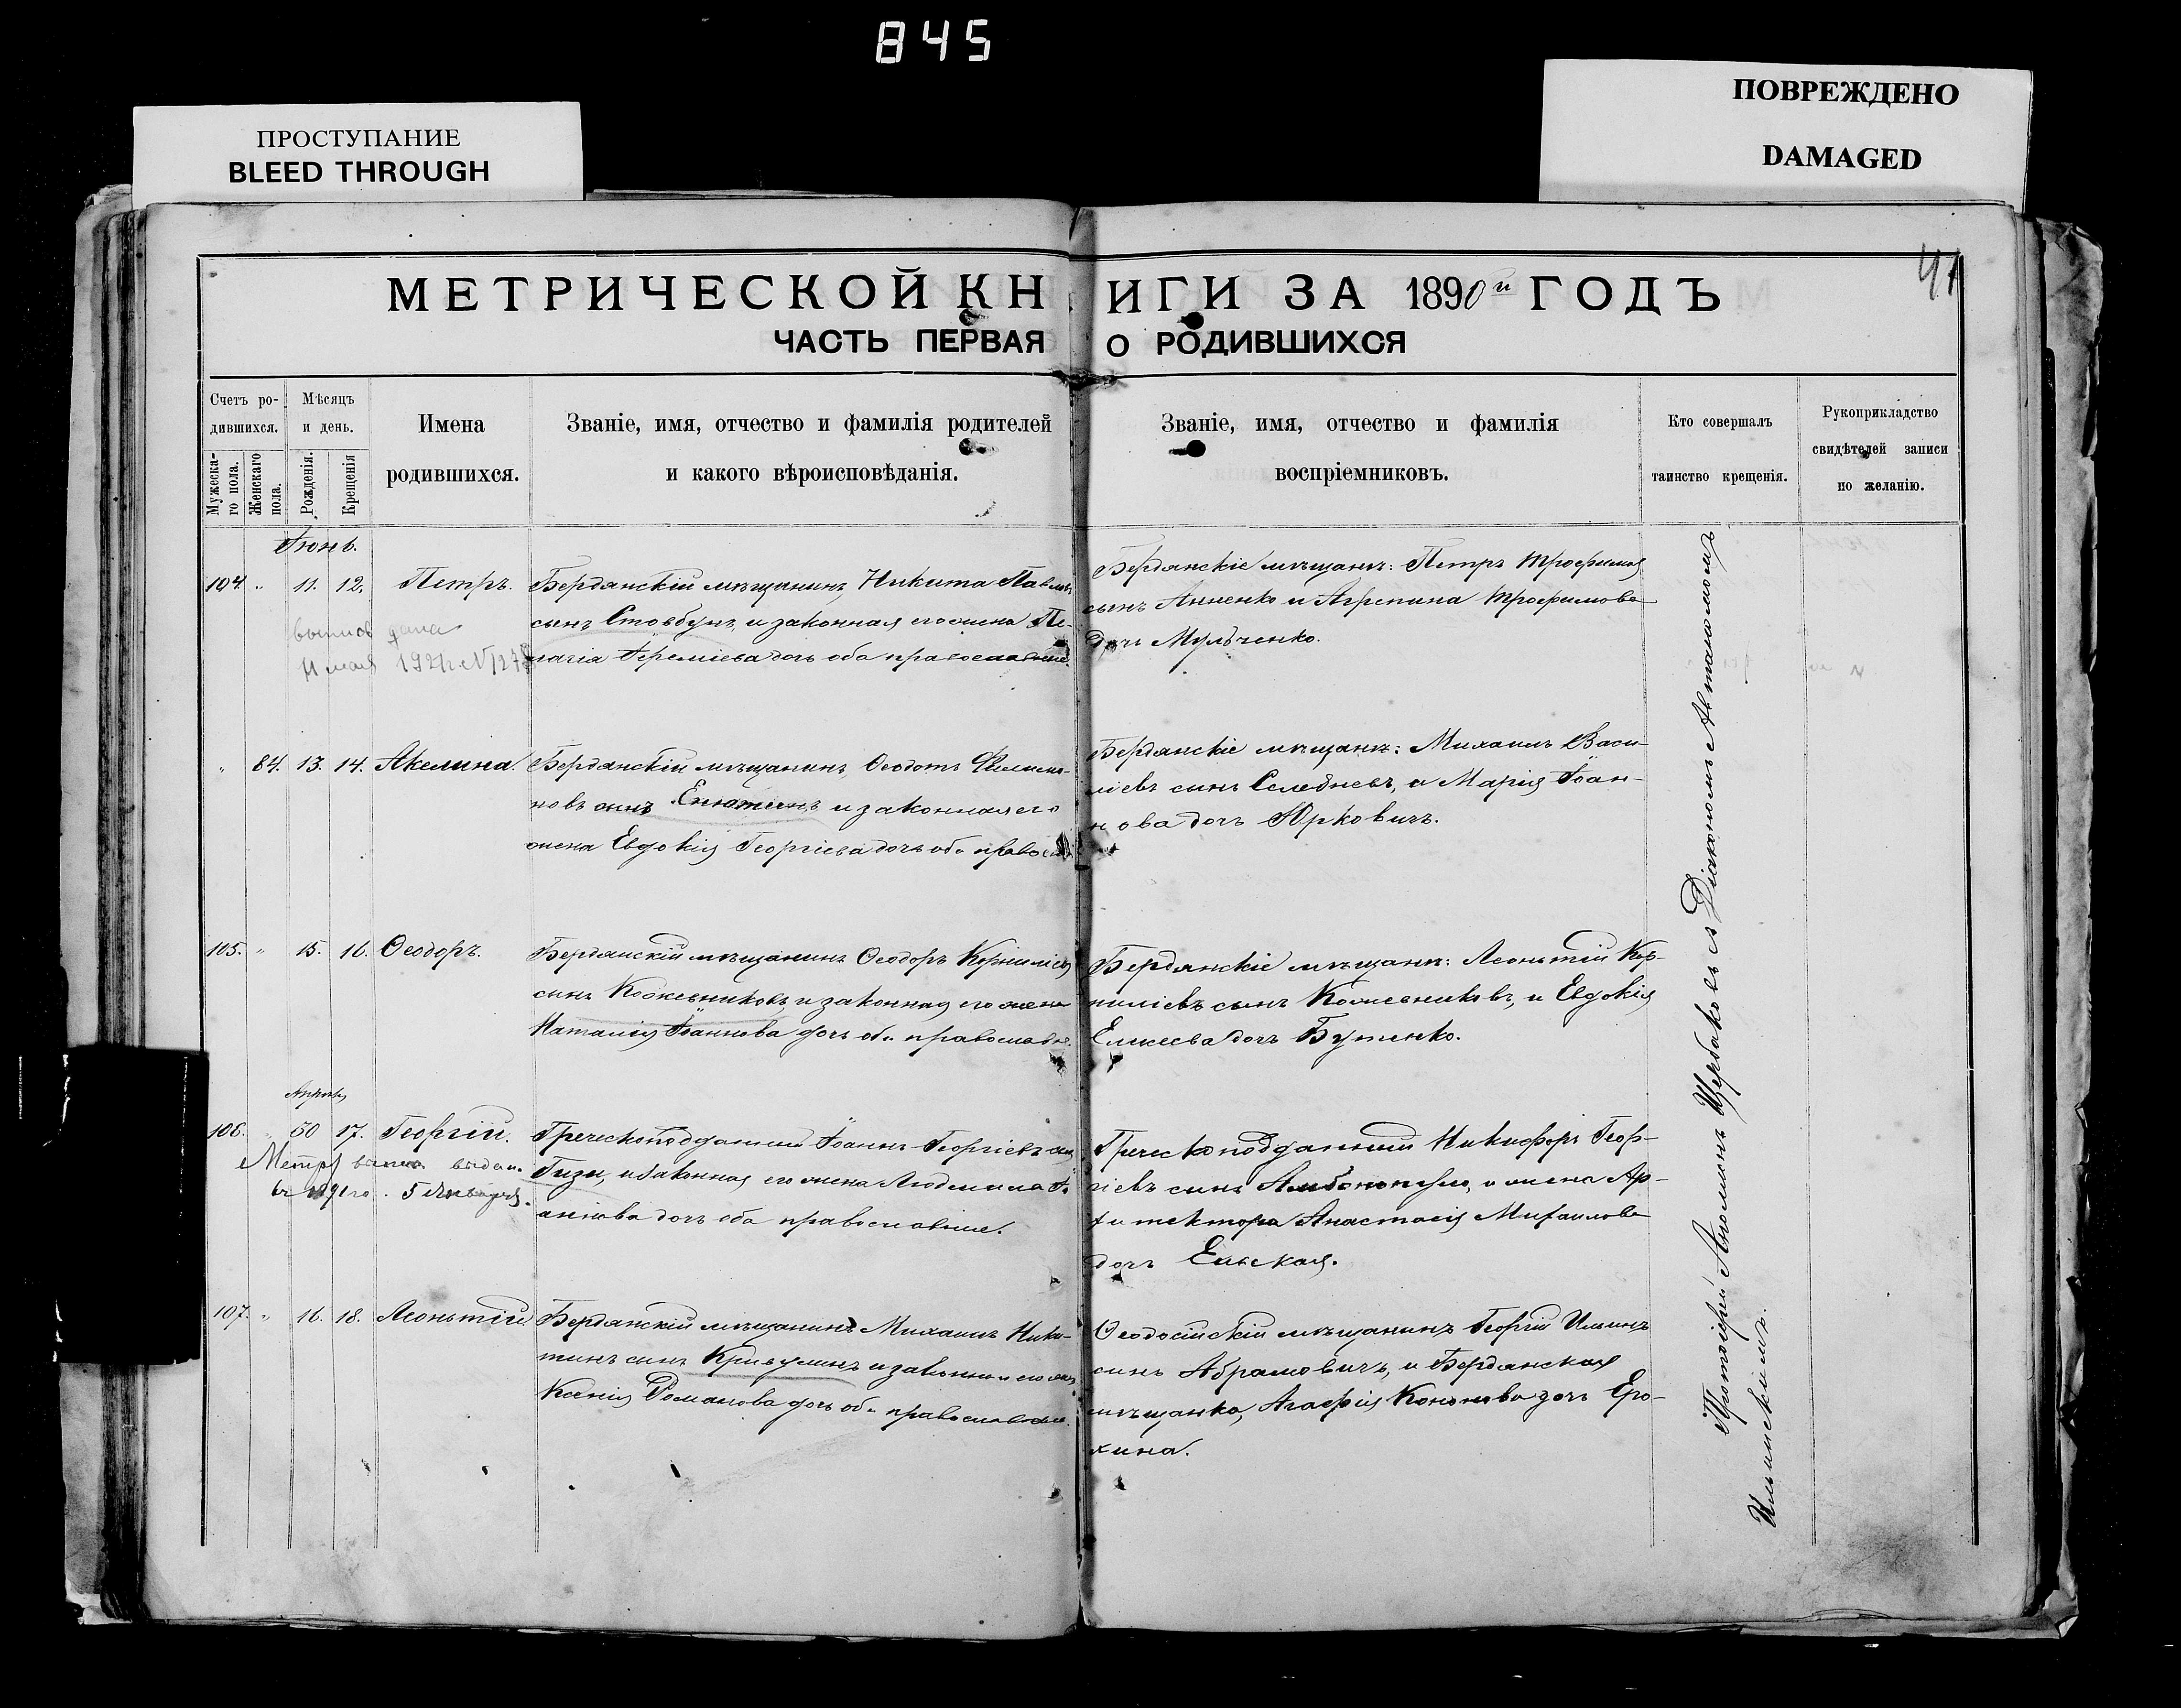 845
ПРОСТУПАНИЕ
BLEED THROUGH
ПОВРЕЖДЕНО
DAMAGED
41
МЕТРИЧЕСКОЙ КНИГИ ЗА 1890й ГОДЪ
ЧАСТЬ ПЕРВАЯ О РОДИВШИХСЯ
Счетъ ро-
дившихся.
Мужеска-
го пола.
Женскаго
пола.
Мѣсяцъ
и день.
Рожденія.
Крещенія
Имена
родившихся.
Званіе, имя, отчество и фамилія родителей
и какого вѣроисповѣданія.
Званіе, имя, отчество и фамилія
воспріемниковъ.
Кто совершалъ
таинство крещенія.
Рукоприкладство
свидѣтелей записи
по желанію.
Іюнь.
104 " 11. 12. Петръ.
дана
Бердянскій мѣщанинъ, Никита Павловъ
сынъ Стовбунъ, и законная его жена Пе-
лагія Іереміева дочь оба православные.
Бердянскіе мѣщане: Петръ Трофимовъ
сынъ Анненко и Агрепина Трофимова
дочь Мульченко.
" 84. 13. 14. Акелина.
Бердянскій мѣщанинъ, Ѳеодотъ Филимо-
новъ сынъ Енютинъ и законная его
жена Евдокія Георгіева дочь оба правосл
Бердянскіе мѣщане: Михаилъ Васи-
ліевъ сынъ Селедневъ, и Марія Іоан-
нова дочь Юрковичъ.
105. " 15. 16. Ѳеодоръ.
Бердянскій мѣщанинъ Ѳеодоръ Корниліевъ
сынъ Кожевниковъ, и законная его жена
Наталія Іоаннова дочь оба православн.
Бердянскіе мѣщане: Леонтій Кор-
ниліевъ сынъ Кожевниковъ, и Евдокія
Елисеева дочь Бутенко.
Апрѣль
106. " 30 17. Георгій.
Метр выпис выдан.
въ 1891го. 5 Января.
Греческоподданный Іоаннъ Георгіевъ сынъ
Гизи, и законная его жена Людмила
анова дочь оба православные.
Греческоподданный Никифоръ Геор-
гіевъ сынъ и жена Ар-
хитектора Анастасія Михаилова
дочь Енская.
107. " 16. 18. Леонтій
Бердянскій мѣщанинъ Михаилъ Ники-
тинъ сынъ Кривулинъ и законная его жена
Ксенія Романова дочь оба православные.
Ѳеодосійскій мѣщанинъ Георгій Ильинъ
сынъ Абрамовичъ, и Бердянская
мѣщанка, Агафія Кононова дочь Еро-
хина.
Протоіерей Щербаковъ съ Діакономъ Автаномомъ
Ильинскимъ.